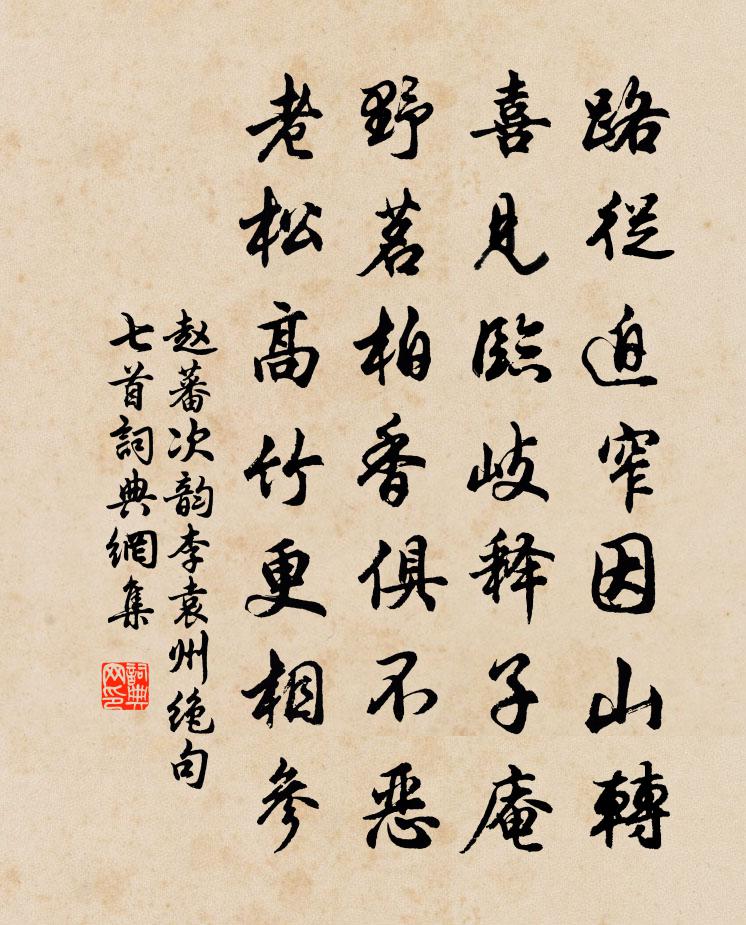 路從迫窄因山轉
喜見臨岐释子庵
野茗柏香俱不惡
老松高竹更相參
赵蕃次韵李袁州绝句
七首詞典網集
詞典网印